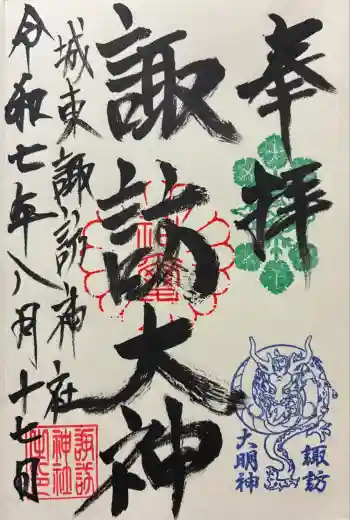 奉拝
諏訪大神
城東諏訪神社
令和七年八月十七日
諏訪
大明神
諏訪
神社
之印